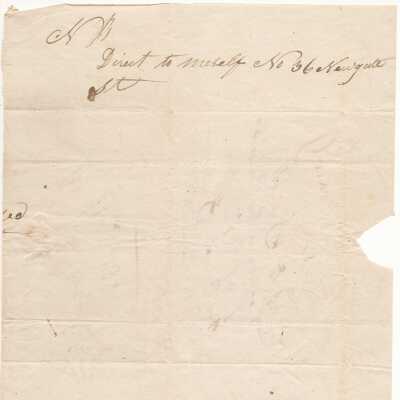 N B
Direct to meself No 36 Newgate
St